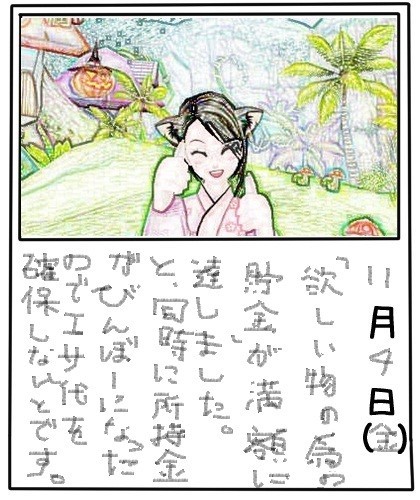 11月4日(金)
「欲しい物の為の
貯金」が満額に
達しました。
と、同時に所持金
がびんぼーになった
のでエサ代を
確保しないとです。